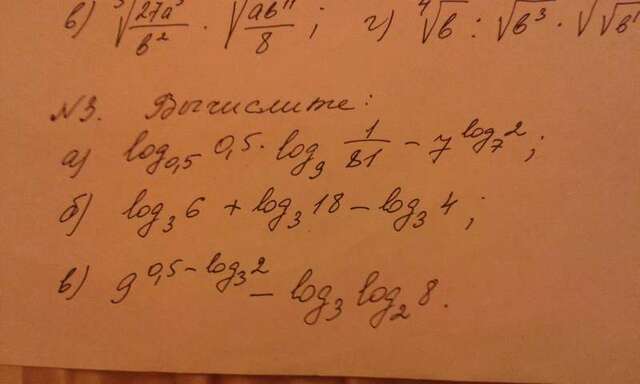 в) ∛(27a³/b²) · √(ab¹¹/8) ; г) ⁴√b : √b³ · √√b
№3. Вычислите:
а) log₀,₅ 0,5 · log₉ 1/81 − 7^(log₇ 2) ;
б) log₃ 6 + log₃ 18 − log₃ 4 ;
в) 9^(0,5 − log₃ 2) − log₃ log₂ 8.